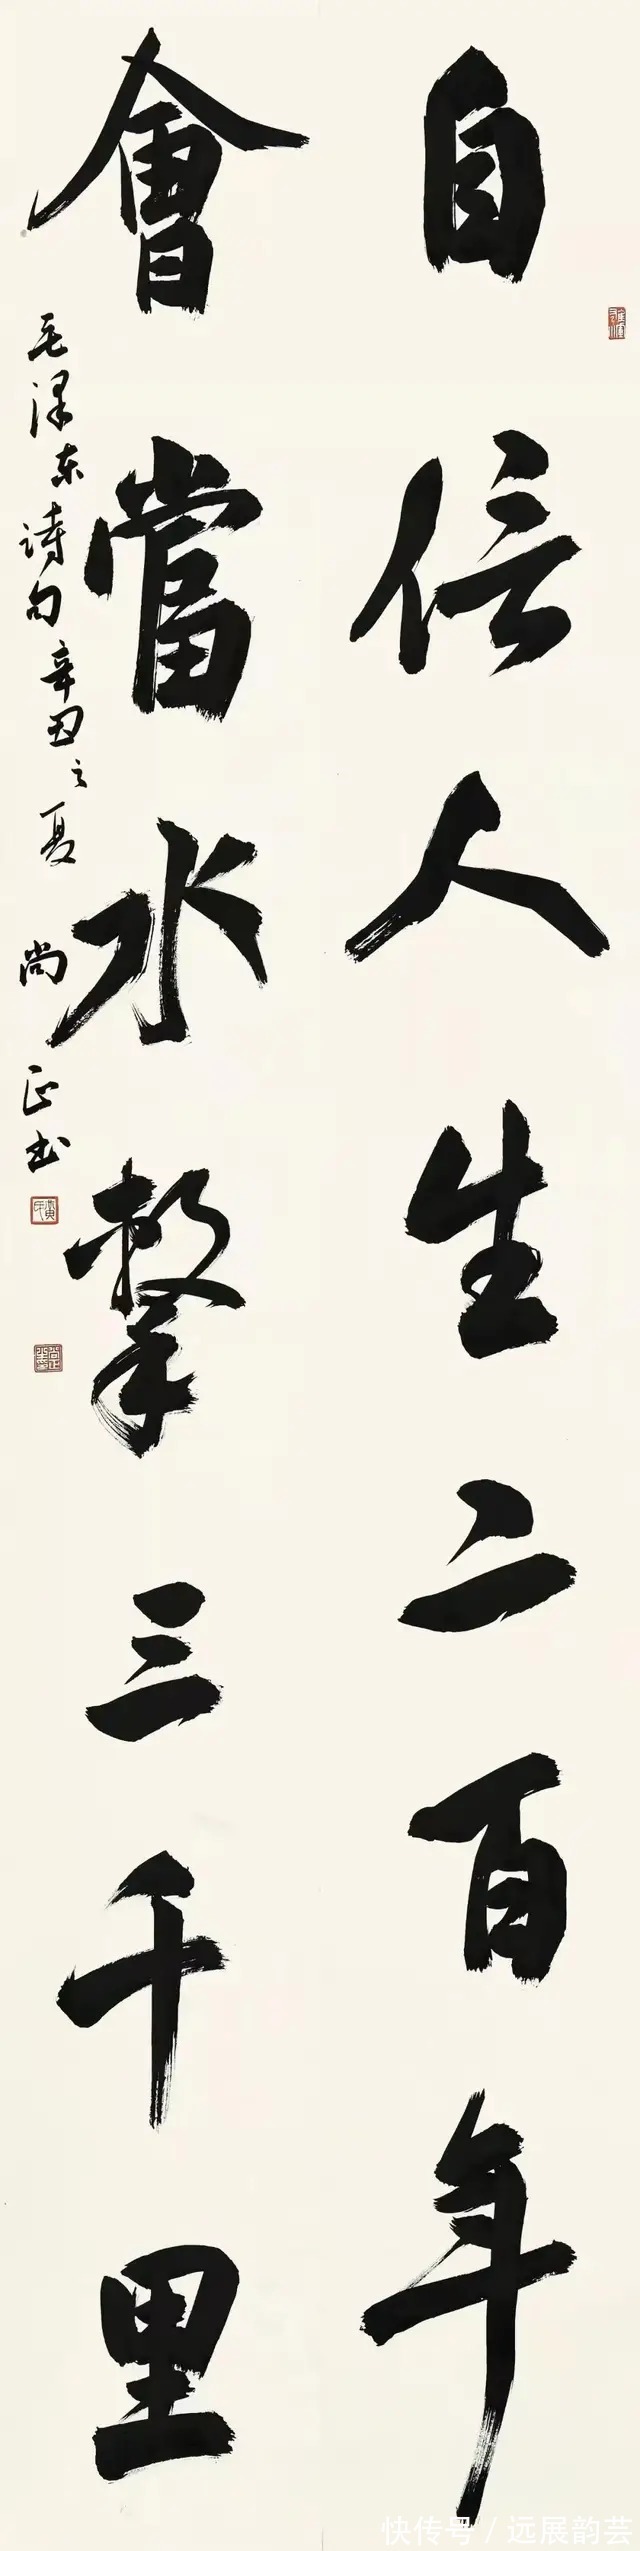 自信人生二百年
會當水擊三千里
毛泽东诗句 辛丑之夏 尚正书
快传号/远展韵芸